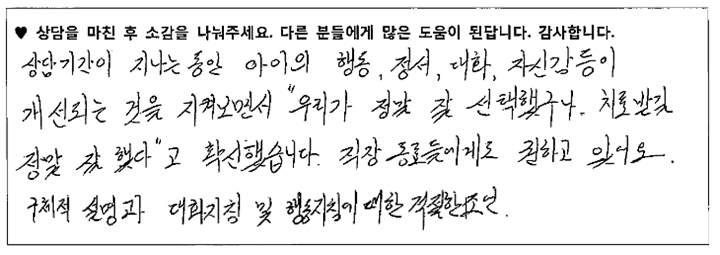 ♥ 상담을 마친 후 소감을 나눠주세요. 다른 분들에게 많은 도움이 된답니다. 감사합니다.
상담기간이 지나는 동안 아이의 행동, 정서, 대화, 자신감 등이
개선되는 것을 지켜보면서 "우리가 정말 잘 선택했구나. 치료받길
정말 잘 했다"고 확신했습니다. 직장 동료들에게도 권하고 있어요.
구체적 설명과 대화지침 및 행동지침에 대한 적절한 조언.